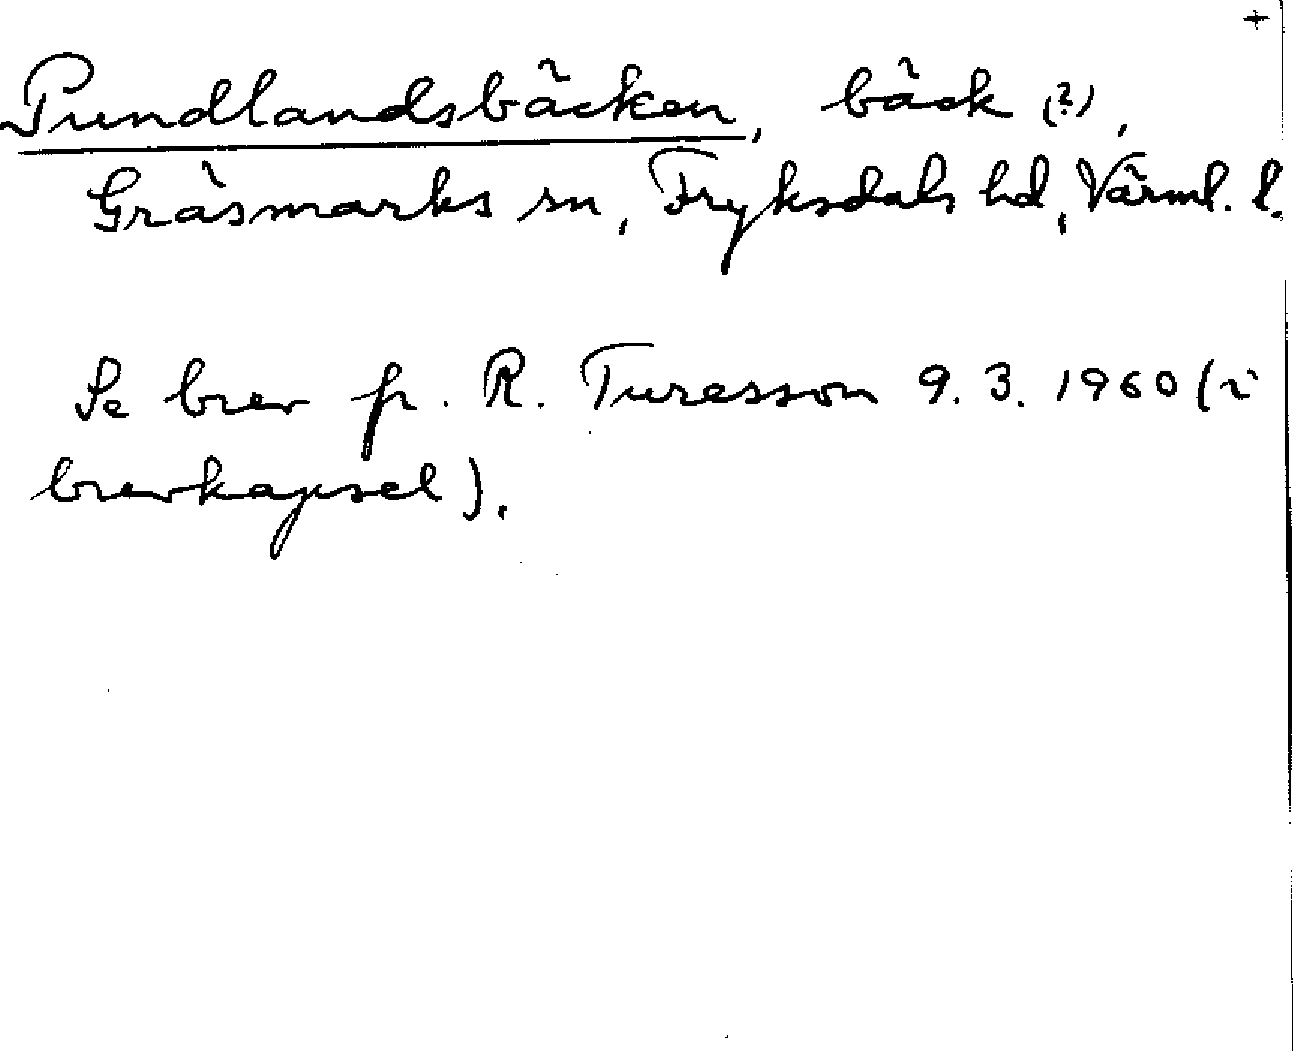 +
Pundlandsbäcken, bäck (?),
Gräsmarks sn, Fryksdals hd, Värml. l.
Se brev fr. R. Turesson 9.3.1960 (i
brevkapsel).